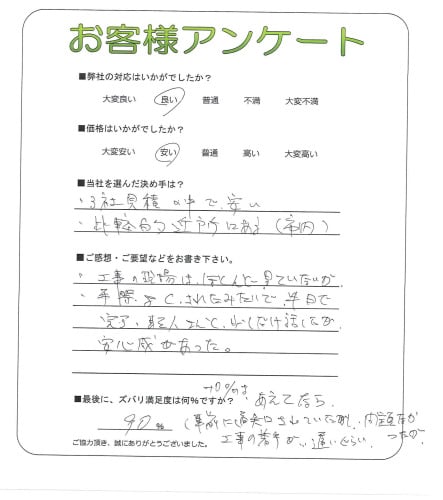 お客様アンケート
■弊社の対応はいかがでしたか？
大変良い 良い 普通 不満 大変不満
■価格はいかがでしたか？
大変安い 安い 普通 高い 大変高い
■当社を選んだ決め手は？
・3社見積の中で、安い
・比較的近所にある（市内）
■ご感想・ご要望などをお書き下さい。
・工事の現場は、ほとんど見ていないが、
・手際よく、されたみたいで、半日で
完了・職人さんと、少しだけ話したが、
安心感があった。
-10%は、あえてなら、
■最後に、ズバリ満足度は何%ですか？
90%
（事前に
されていた
工事の着手が、遅いぐらい
ご協力頂き、誠にありがとうございました。